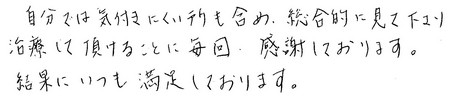 自分では気付きにくい所も含め、総合的に見て下さり
治療して頂けることに毎回、感謝しております。
結果にいつも満足しております。